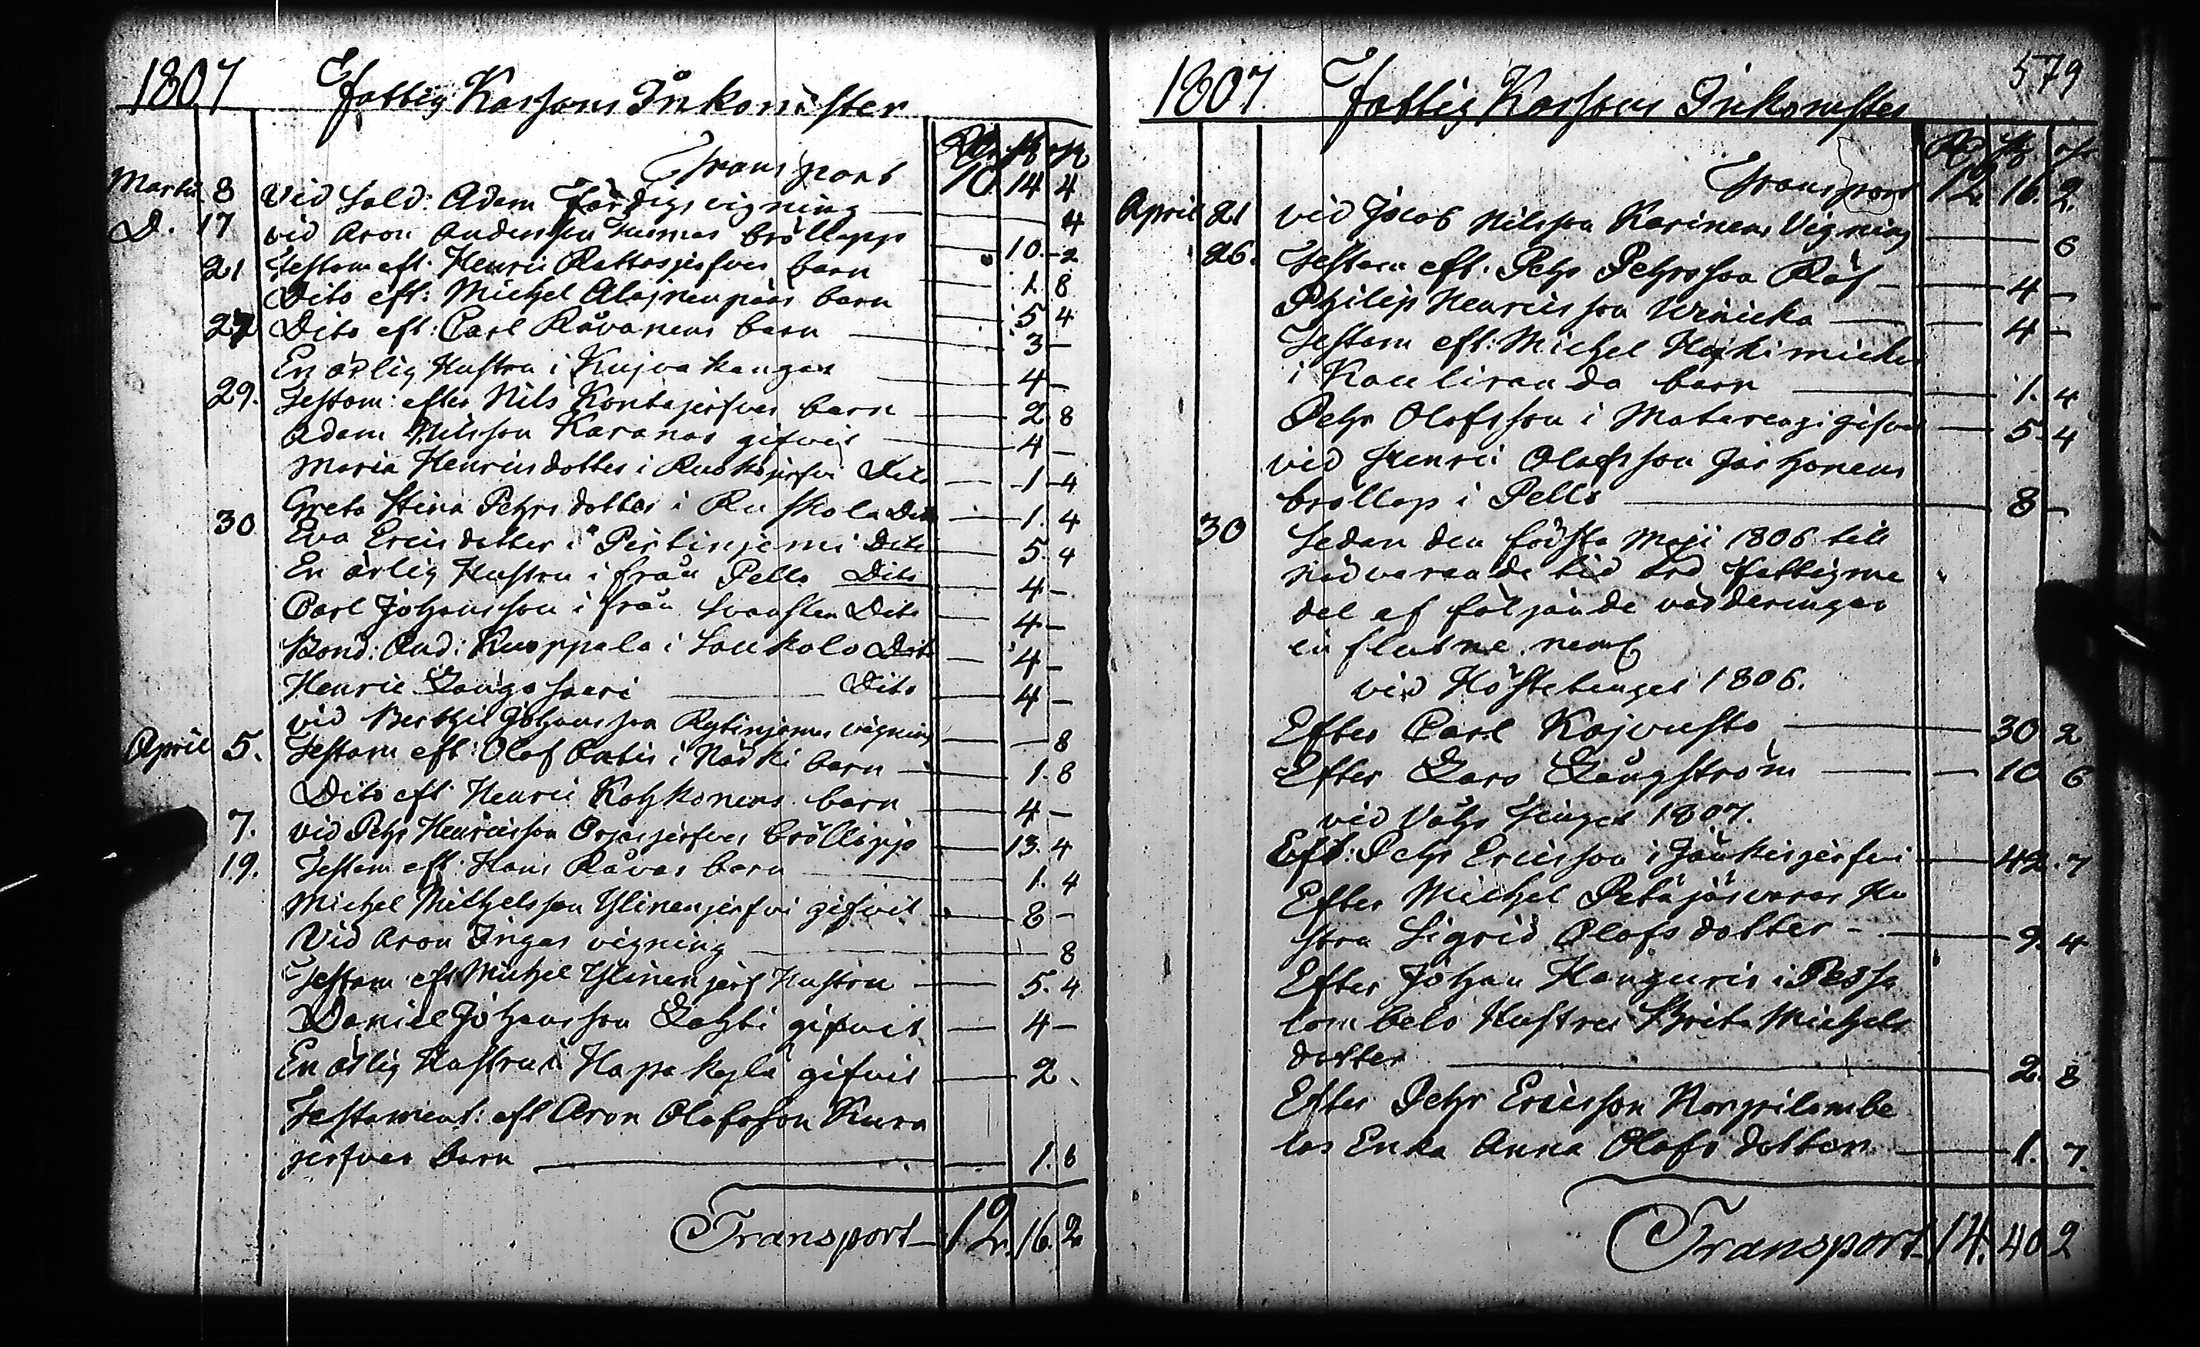 1807 Fattig Kassans Inkomster
Rd. sk. rst.
Transport 10. 14 4
Martii 8 Vid Sold: Adam Färdigs vigning 4
D. 17 vid Aron Andersson bröllopp 10. 2
21 Testam eft. Henric Rattosjerfvis barn 1. 8
Dito eft: Michel Alajnenpääs barn 5 4
27 Dito eft: Carl Råvanens barn 3 —
En ärlig Hustru i Kujvakangas 4 —
29. Testam: efter Nils Kontajerfves barn 2 8
Adam Nilsson Karanas gifvit 4 —
Maria Henricsdotter i Ruokojerfvi Dito 1 4
Greta Stina Pehrsdotter i Ruskola Dito 1. 4
30 Eva Ericsdotter i Pertinjemi Dito 5 4
En ärlig Hustru ifrån Pello Dito 4 —
Carl Johansson ifrån Svansten Dito 4 —
Bond: And: Kuoppala i Soukolo Dito 4 —
Henric Dito 4 —
vid Berthil Johansson Rytinjemis vigning 8
April 5. Testam eft: Olof Antis i Närki barn 1. 8
Dito eft Henric Kohkonens barn 4 —
7. vid Pehr Henricsson Orjasjerfves bröllopp 13. 4
19. Testam eft. Hans Råvas barn 1. 4
Michel Michelsson Ylinenjerfvi gifvit 8 —
Vid Aron Ingas vigning 8
Testam eft Michel Ylinenjerf Hustru 5. 4
Daniel Johansson Lahti gifvit 4 —
En ärlig Hustru i Hapakylä gifvit 2.
Testament: eft Aron Olofsson Kura
jerfves Barn 1. 8
Transport 12. 16. 2
1807. Fattig Kassans Inkomster 579
Rd. sk. rst.
Transport 12. 16. 2.
April 21 vid Jacob Nilsson Karinens Vigning 6
26. Testam eft. Pehr Pehrsson Räf 4 —
Philip Henricsson Winicka 4 —
Testam eft: Michel
i Kauliranda barn 1. 4
Pehr Olofsson i Matarengi gifvit 5. 4
vid Henric Olofsson Jarhonens
bröllop i Pello 8 —
30 Sedan den första Maji 1806 till
närvarande tid äro Fattigme
del af följande värderingar
influtne, neml
vid Höstetinget 1806.
Efter Carl Kojvusto 30 2
Efter Lars Långström 10 6
vid Vår Tinget 1807.
Eft: Pehr Ericsson i Jänkisjerfvi 42. 7
Efter Michel Petäjäsvaras Hu
stru Sigrid Olofsdotter 9. 4
Efter Johan Hanguris i Pessa
lombolo Hustru Brita Michels
dotter 2. 8
Efter Pehr Ericsson Norpilombo
los Enka Anna Olofsdotter 1. 7.
Transport 14. 40 2